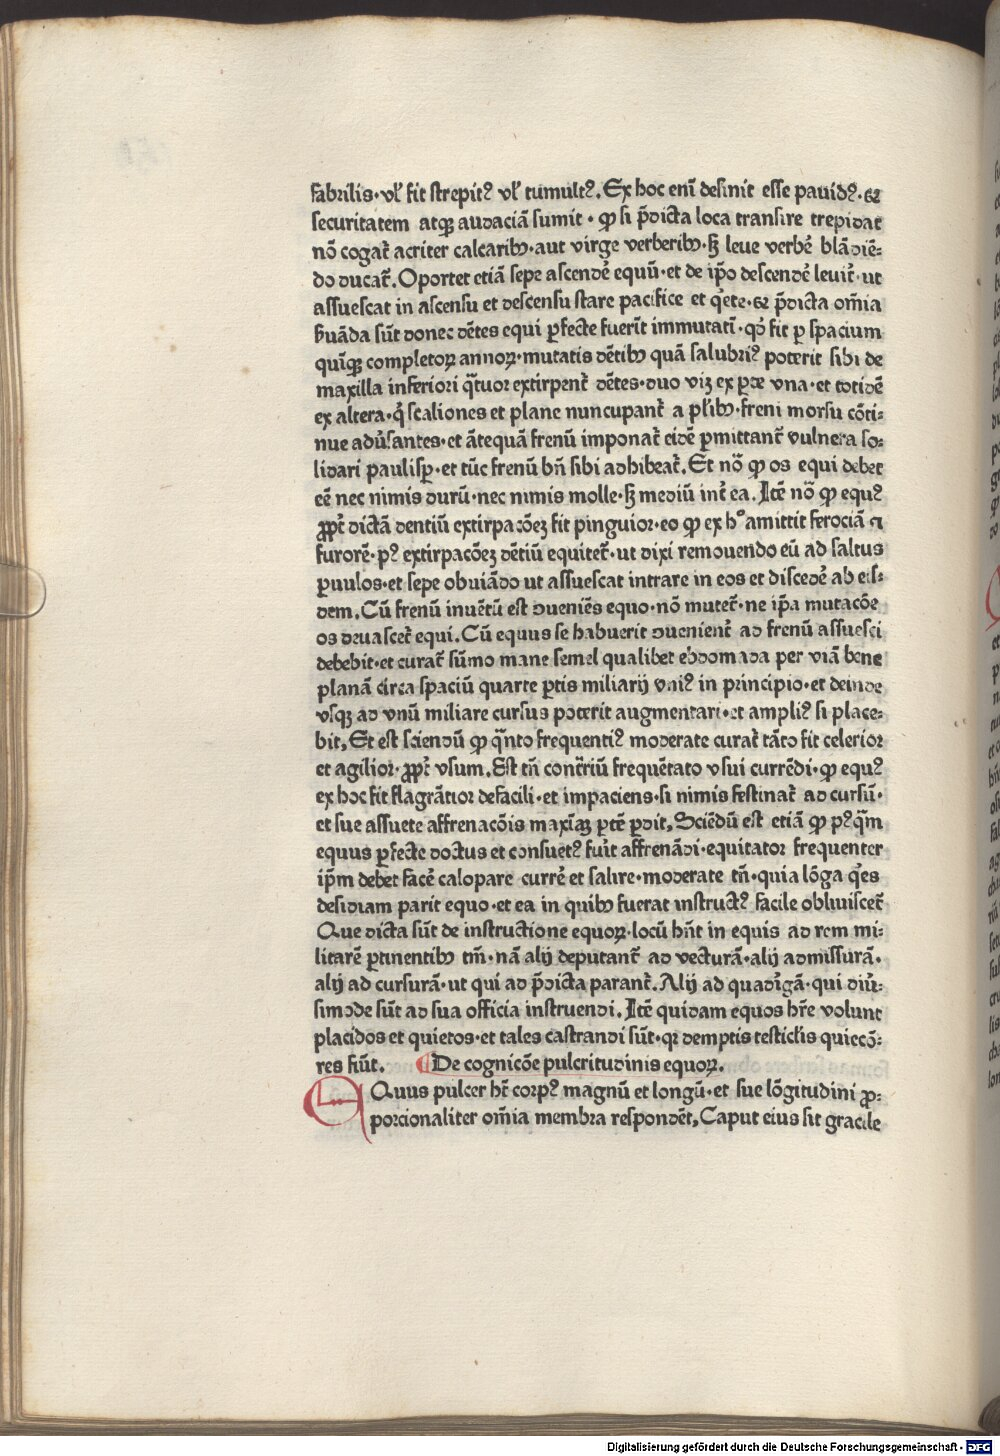 fabrilis·vl̕ fit strepitꝰ vl̕ tumultꝰ. Ex hoc eni̅ desinit esse pauidꝰ·⁊
securitatem atqꝫ audacia̅ sumit·ꝙ si p̅dicta loca transire trepidat
no̅ cogat᷑ acriter calcaribꝰ·aut virge verberibꝰ·sꝫ leue verbe᷑ bla̅die̅⸗
do ducat᷑. Oportet etia̅ sepe ascende᷑ equu̅·et de ip̅o descende᷑ leuit᷑·ut
assuescat in ascensu et descensu stare pacifice et q̕ete·⁊ p̅dicta om̅ia
s̕ua̅da su̅t donec de̅tes equi ꝑfecte fueri̅t immutati̅·qd̕ fit ꝑ spacium
qui̅qꝫ completoꝝ annoꝝ·mutatis de̅tibꝰ qua̅ salubriꝰ poterit sibi de
maxilla inferiori q̅tuor extirpent᷑ de̅tes·duo viꝫ ex ꝑte vna·et totide̅
ex altera·q̕ scaliones et plane nuncupant᷑ a pl̕ibꝰ·freni morsu co̅ti⸗
nue adu̕santes·et a̅tequa̅ frenu̅ imponat᷑ eide̅ ꝑmittant᷑ vulnera so⸗
lidari paulisꝑ·et tu̅c frenu̅ bn̅ sibi adhibeat᷑. Et no̅ ꝙ os equi debet
ee̅ nec nimis duru̅·nec nimis molle·sꝫ mediu̅ int᷑ ea. Ite̅ no̅ ꝙ equꝰ
ꝓpt᷑ dicta̅ dentiu̅ extirpaco̅eꝫ fit pinguior·eo ꝙ ex hᵒ amittit ferocia̅ ⁊
furore̅·pꝰ extirpaco̅eꝫ de̅tiu̅ equitet᷑·ut dixi remouendo eu̅ ad saltus
ꝑuulos·et sepe obuia̅do ut assuescat intrare in eos et discede᷑ ab eis⸗
dem. Cu̅ frenu̅ inue̅tu̅ est ↄuenie̅s equo·no̅ mutet᷑·ne ip̅a mutaco̅e
os deuastet᷑ equi. Cu̅ equus se habuerit ↄuenient᷑ ad frenu̅ assuesci
debebit·et curat᷑ su̅mo mane semel qualibet ebdomada per via̅ bene
plana̅ circa spaciu̅ quarte ꝑtis miliarij vniꝰ in principio·et deinde
vsqꝫ ad vnu̅ miliare cursus poterit augmentari·et ampliꝰ si place⸗
bit, Et est sciendu̅ ꝙ q̅nto frequentiꝰ moderate curat᷑ ta̅to fit celerior
et agilior·ꝓpt᷑ vsum. Est tn̅ cont᷑riu̅ freque̅tato vsui curre̅di·ꝙ equꝰ
ex hoc fit flagra̅tior defacili·et impaciens·si nimis festinat᷑ ad cursu̅·
et sue assuete affrenaco̅is maxi̅aꝫ ꝑte̅ ꝑdit, Scie̅du̅ est etia̅ ꝙ pꝰq̅m
equus ꝑfecte doctus et consuetꝰ fu̕it affrena̅di·equitator frequenter
ip̅m debet face᷑ calopare curre᷑ et salire·moderate tn̅·quia lo̅ga q̕es
desidiam parit equo·et ea in quibꝰ fuerat instructꝰ facile obliuiscet᷑
Que dicta su̅t de instructione equoꝝ·locu̅ hn̅t in equis ad rem mi⸗
litare̅ ꝑtinentibꝰ tm̅·na̅ alij deputant᷑ ad vectura̅·alij admissura̅·
alij ad cursura̅·ut qui ad p̅dicta parant᷑. Alij ad quadri̕ga̅·qui diu̕⸗
simode su̅t ad sua officia instruendi. Ite̅ quidam equos hr̅e volunt
placidos et quietos·et tales castrandi su̅t·qꝛ demptis testiclis quieco̅⸗
res fiu̅t. De cognico̅e pulcritudinis equoꝝ.
EQuus pulcer ht᷑ corpꝰ magnu̅ et longu̅·et sue lo̅gitudini ꝓ⸗
porcionaliter om̅ia membra responde̅t, Caput eius sit gracile
Digitalisierung gefördert durch die Deutsche Forschungsgemeinschaft - DFG